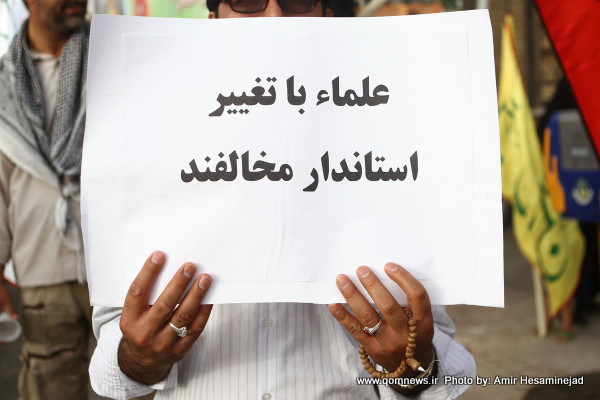 علماء با تغییر
استاندار مخالفند
www.qomnews.ir Photo by: Amir Hesaminejad